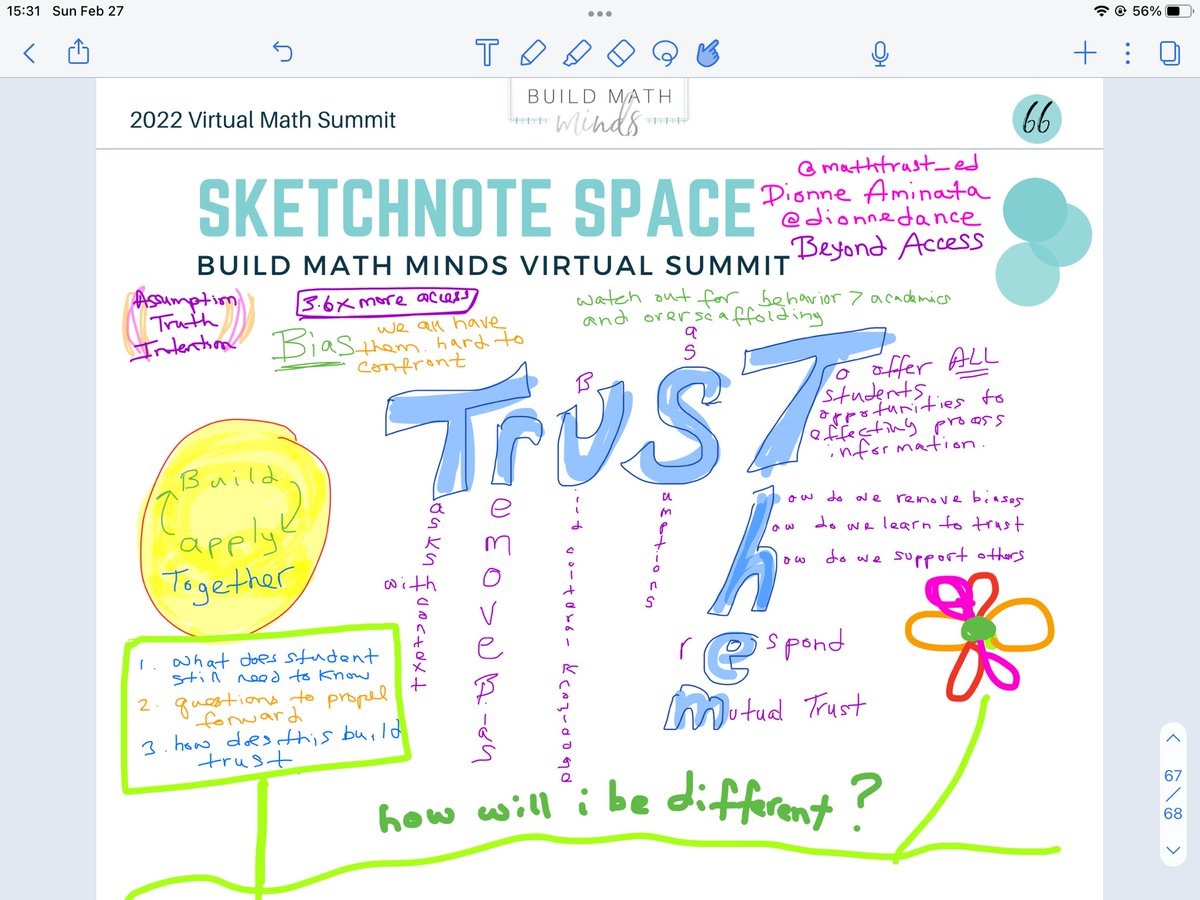 15:31 Sun Feb 27
56%
T
BUILD MATH
minds
2022 Virtual Math Summit
66
@mathtrust_ed
SKETCHNOTE SPACE
Dionne Aminata
@dionnedance
Beyond Access
BUILD MATH MINDS VIRTUAL SUMMIT
Assumption
Truth
Intention
3.6x more access
Bias
we all have
them. hard to
confront
watch out for behavior > academics
and overscaffolding
TrUST
Tasks
with
context
remove Bias
BUild cultural knowledge
asSumptions
To offer ALL
students
opportunities to
affecting process
information.
Them
how do we remove biases
how do we learn to trust
how do we support others
respond
mutual Trust
Build
apply
Together
1. what does student
still need to know
2. questions to propel
forward
3. how does this build
trust
how will i be different?
67
/
68